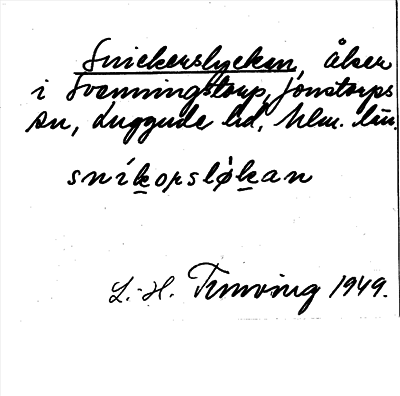 Snickerslyckan, åker
i Svenningstorp, Jonstorps
sn, Luggude hd, Mlm. län.
sníkorsløkan
L.-H. 1949.